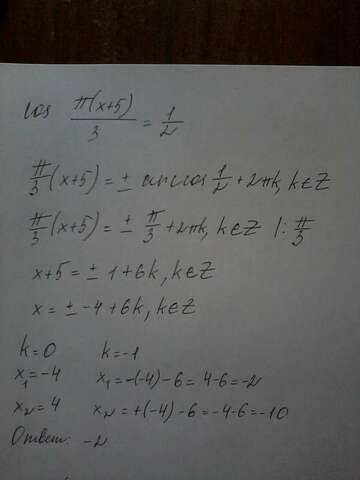 cos π(x+5)/3 = 1/2
π/3 (x+5) = ± arccos 1/2 + 2πk, k∈Z
π/3 (x+5) = ± π/3 + 2πk, k∈Z |: π/3
x+5 = ± 1+6k, k∈Z
x = ± -4+6k, k∈Z
k=0 k=-1
x₁=-4 x₁=-(-4)-6=4-6=-2
x₂=4 x₂=+(-4)-6=-4-6=-10
Ответ: -2